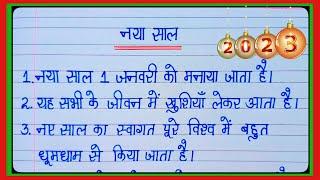 नया साल
2023
1. नया साल 1 जनवरी को मनाया जाता है।
2. यह सभी के जीवन में खुशियाँ लेकर आता है।
3. नए साल का स्वागत पूरे विश्व में बहुत
धूमधाम से किया जाता है।